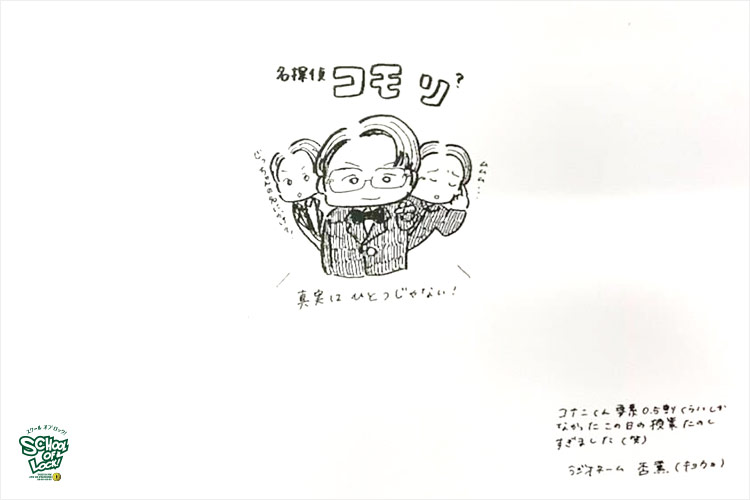 名探偵 コモリ?
じっちゃんの名にかけて!
真実は ひとつじゃない!
コナンくん 要素0.5割くらいしか
なかった この日の 授業 たのし
すぎました (笑)
ラジオネーム 杏薫 (キョウカ)
スクール オブ ロック!
SCHOOL
OF
LOCK!